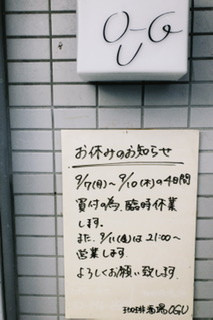 OUG
お休みのお知らせ
9/7(月)~9/10(木)の4日間
買付の為、臨時休業
します。
また、9/11(金)は21:00~
営業します。
よろしくお願い致します。
珈琲酒場OGU